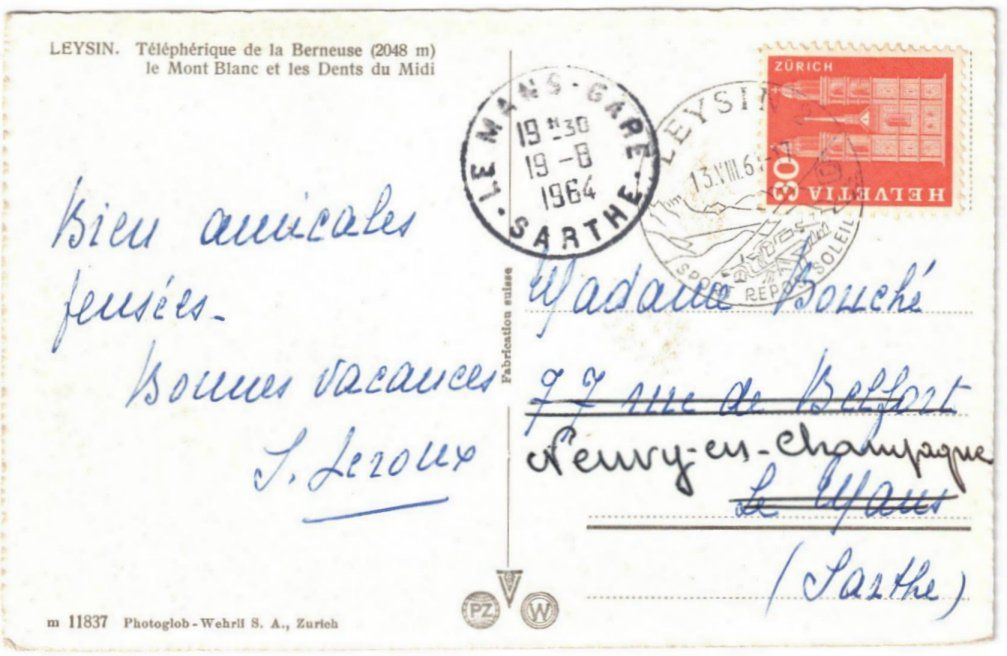 LEYSIN. Téléphérique de la Berneuse (2048 m)
le Mont Blanc et les Dents du Midi
Bien amicales
pensées.
Bonnes vacances
S. Leroux
LE MANS-GARE
19 H30
19 -8
1964
SARTHE
LEYSIN
13.VIII.64-17
SPORT REPOS SOLEIL
ZÜRICH
30
HELVETIA
Fabrication suisse
Madame Bouché
77 rue de Belfort
Neuvy-en-Champagne
Le Mans
(Sarthe)
PZ
W
m 11837 Photoglob-Wehrli S. A., Zurich